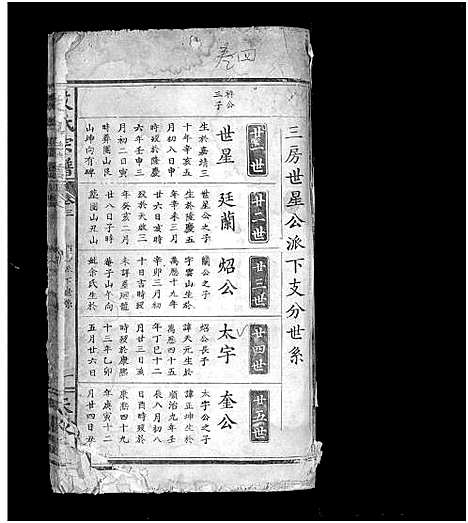 卷四
三房世星公派下支分世系
廿一世
廿二世
廿三世
廿四世
廿五世
公
三子
世星
生於嘉靖三
十年辛亥五
月初八日申
時歿於隆慶
六年壬申三
月初二日寅
時葬團山艮
山坤向有碑
廷蘭
世星公之子
生於隆慶五
年辛未三月
廿六日亥時
歿於天啟三
年癸亥二月
廿八日子時
墓團山丑山
炤公
蘭公之子
字雲山生於
萬曆十九年
辛卯三月初
十日吉時歿
未詳墓
巷子山午向
妣余氏生於
太宇
炤公長子
諱天元生於
萬曆四十五
年丁巳十二
月廿三日亥
時歿於康熙
十三年乙卯
五月廿六日
奎公
太宇公之子
諱正坤生於
順治九年壬
辰八月初八
日酉時歿於
康熙四十九
年庚寅十二
月廿四日丑
氏宗譜
卷三